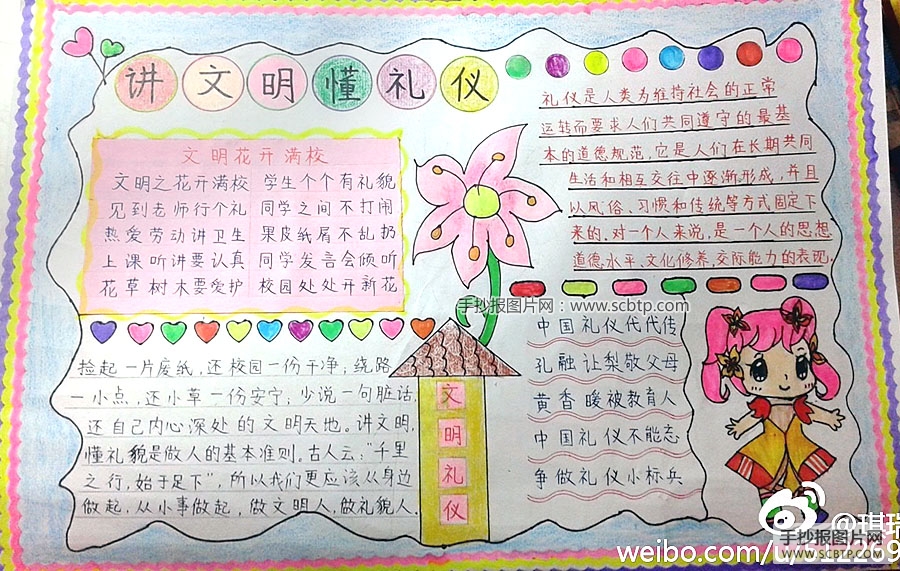 讲文明懂礼仪
文明花开满校
文明之花开满校 学生个个有礼貌
见到老师行个礼 同学之间不打闹
热爱劳动讲卫生 果皮纸屑不乱扔
上课听讲要认真 同学发言会倾听
花草树木要爱护 校园处处开新花
礼仪是人类为维持社会的正常
运转而要求人们共同遵守的最基
本的道德规范,它是人们在长期共同
生活和相互交往中逐渐形成,并且
以风俗、习惯和传统等方式固定下
来的.对一个人来说,是一个人的思想
道德水平、文化修养、交际能力的表现.
手抄报图片网:www.scbtp.com
捡起一片废纸,还校园一份干净;绕路
一小点,还小草一份安宁;少说一句脏话,
还自己内心深处的文明天地。讲文明,
懂礼貌是做人的基本准则。古人云:"千里
之行,始于足下",所以我们更应该从身边
做起,从小事做起,做文明人,做礼貌人.
文
明
礼
仪
中国礼仪代代传
孔融让梨敬父母
黄香暖被教育人
中国礼仪不能忘
争做礼仪小标兵
@琪瑞
手抄报图片网
www.scbtp.com
weibo.com/u